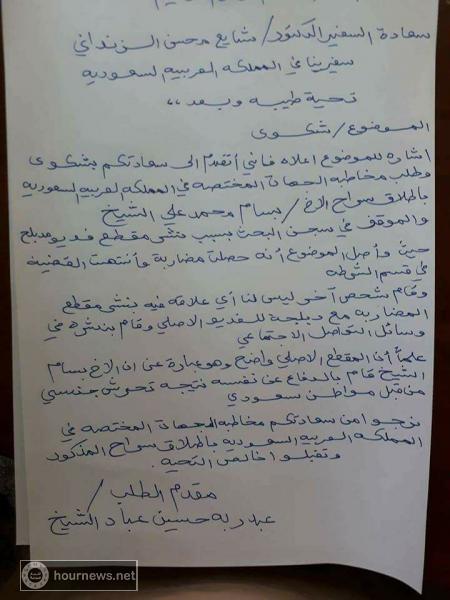 سعادة السفير الدكتور / شايع محسن الزنداني
سفيرنا في المملكه العربيه السعوديه
تحية طيبه وبعد ،،
الموضوع / شكوى
اشاره للموضوع اعلاه فانني أتقدم الى سعادتكم بشكوى
وطلب مخاطبه الجهات المختصه في المملكه العربيه السعوديه
باطلاق سراح الاخ / بسام محمد علي الشيخ
والموقف في سجن البحث بسبب نشر مقطع فديو مدبلج
حيث وأصل الموضوع أنه حصلت مضاربة وأنتهت القضية
في قسم الشرطه
وقام شخص آخر ليس لنا أي علاقه فيه بنشر مقطع
المضاربه مع دبلجة للفديو الاصلي وقام بنشره في
وسائل التواصل الاجتماعي
علماً أن المقطع الاصلي واضح وهو عبارة عن ان الاخ بسام
الشيخ قام بالدفاع عن نفسه نتيجه تحرش جنسي
من قبل مواطن سعودي
نرجوا من سعادتكم مخاطبه الجهات المختصه في
المملكه العربيه السعوديه باطلاق سراح المذكور
وتقبلوا خالص التحيه .
مقدم الطلب /
عبدربه حسين عباد الشيخ
hournews.net